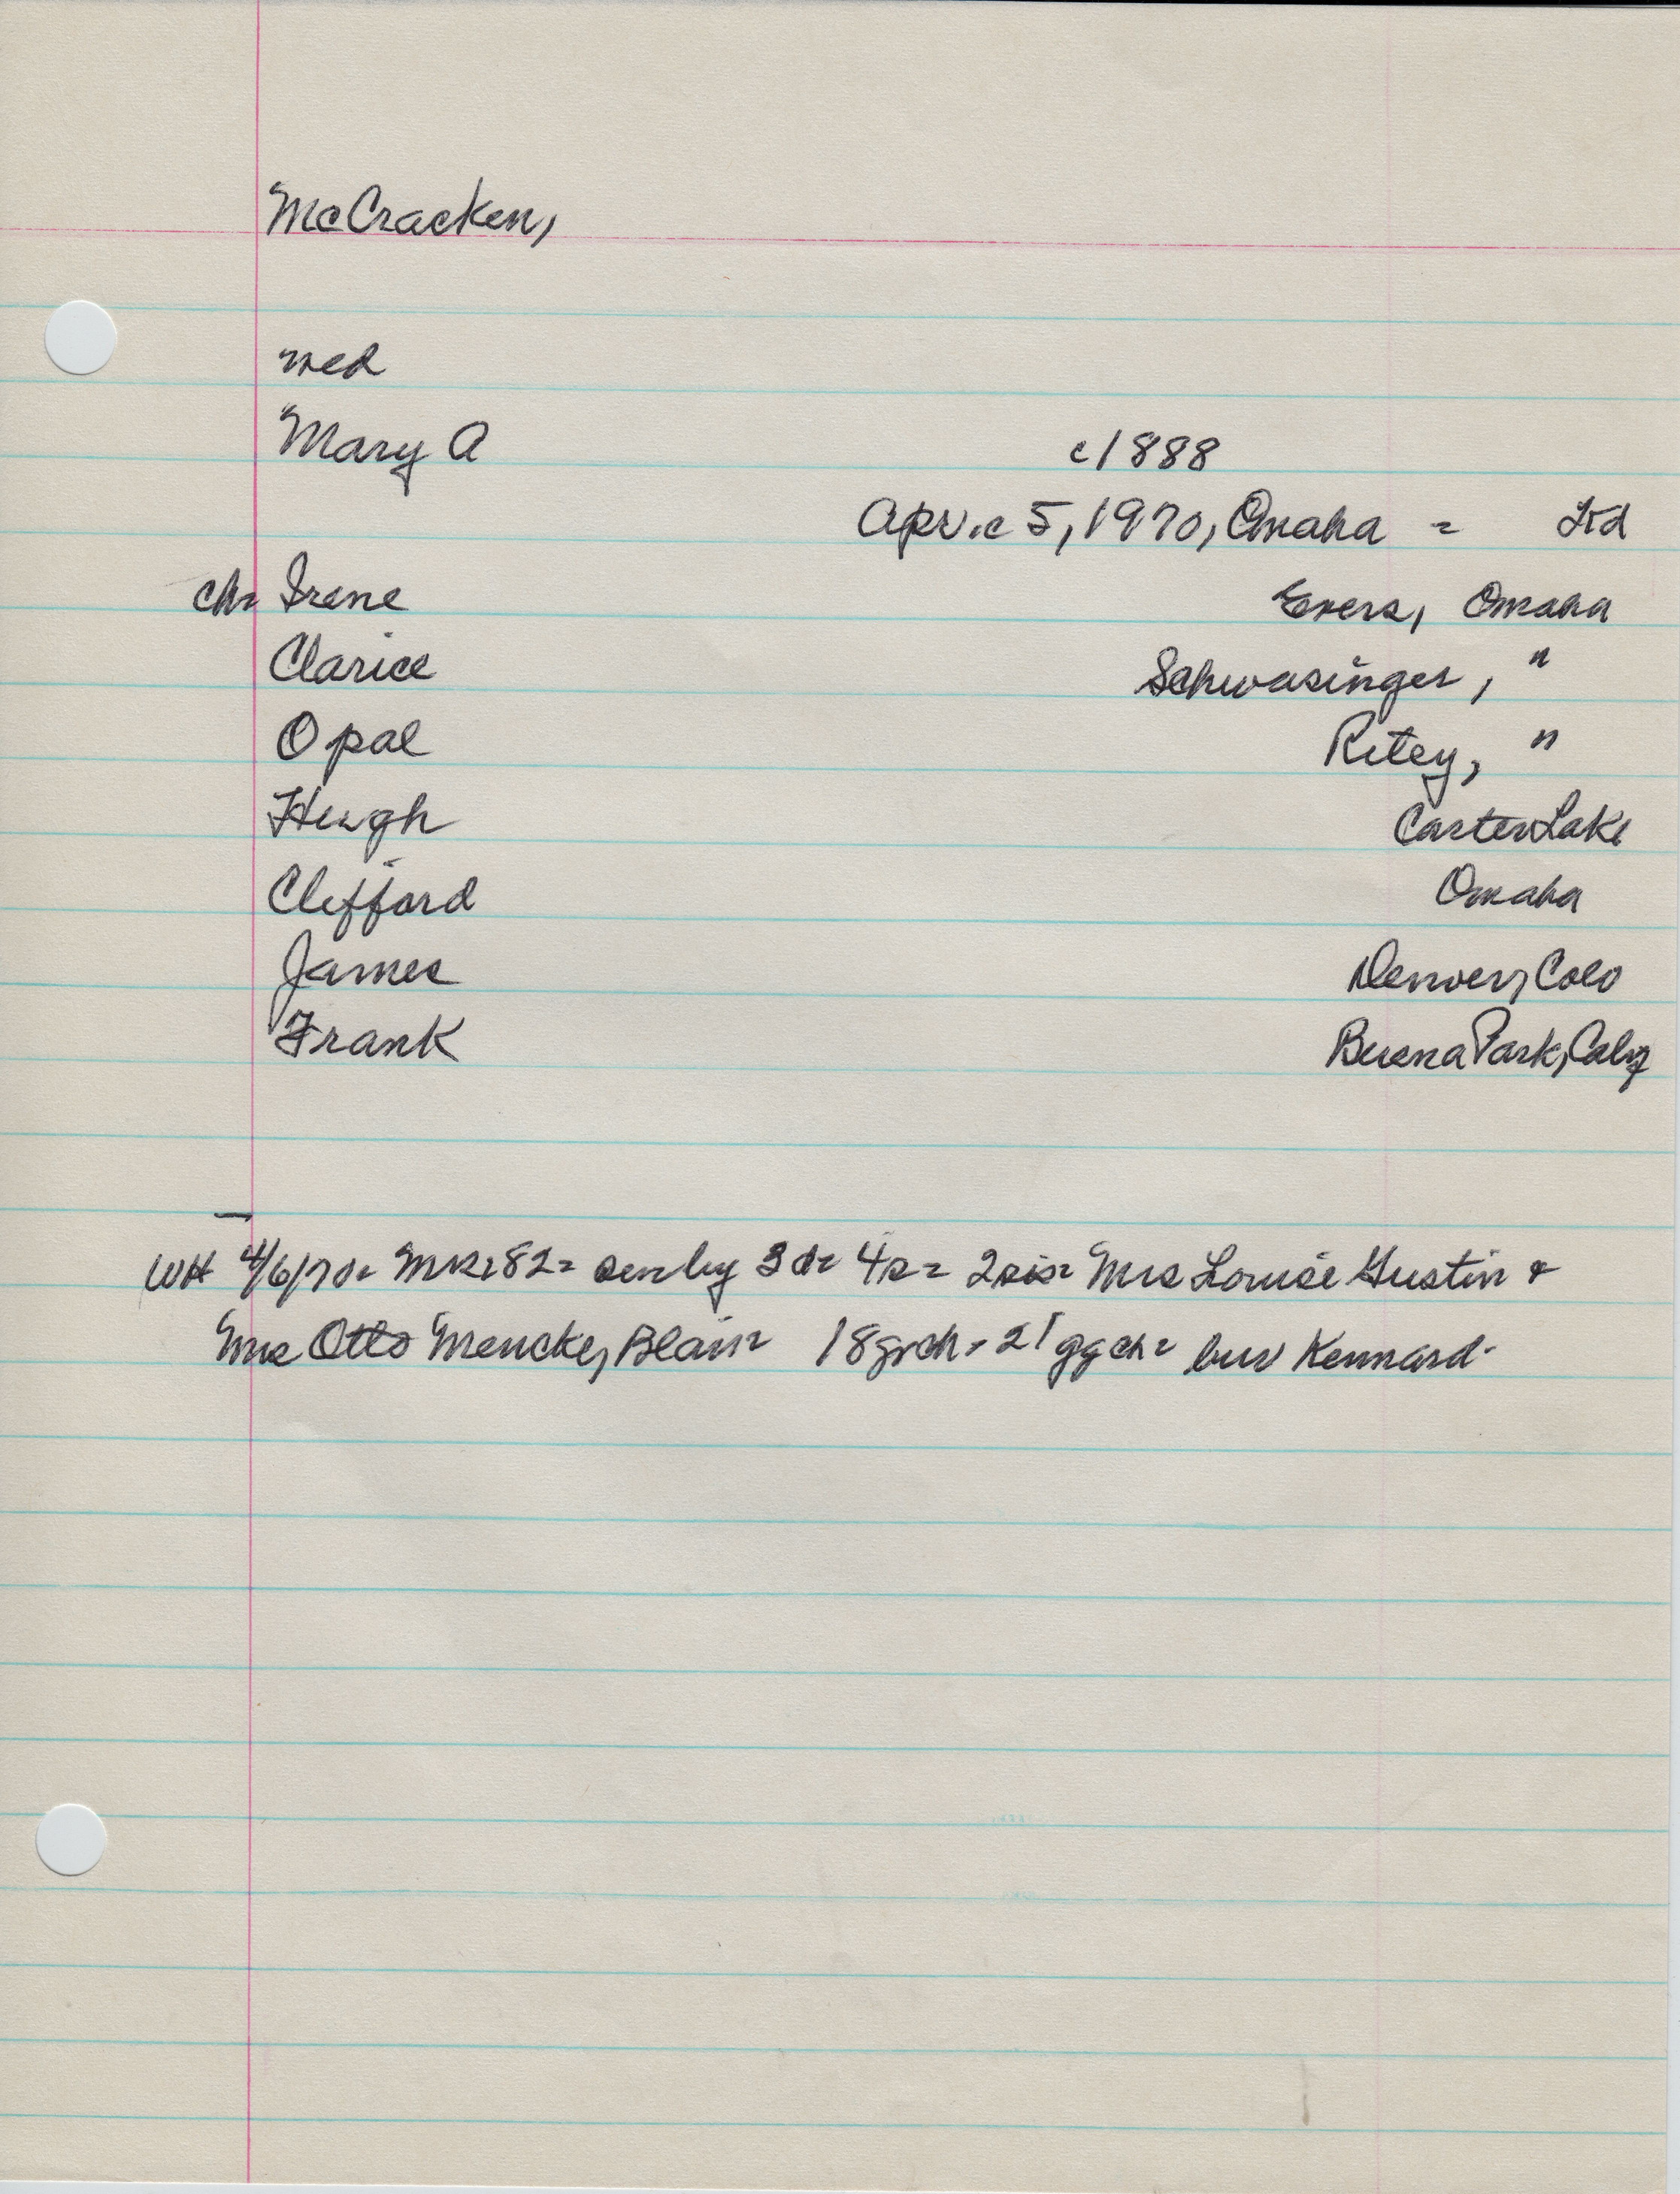 McCracken,
wed
Mary A c1888
Apr.c 5, 1970, Omaha =
ch= Irene Evers, Omaha
Clarice Schwasinger, "
Opal Ritey, "
Hugh Carter Lake
Clifford Omaha
James Denver, Colo
Frank Buena Park, Calif
WH 4/6/70= Mrs= 82= sur by 3 d= 4s= 2sis= Mrs Louise Gustin &
Mrs Otto Mencke, Blair= 18grch= 21ggch= bur Kennard-